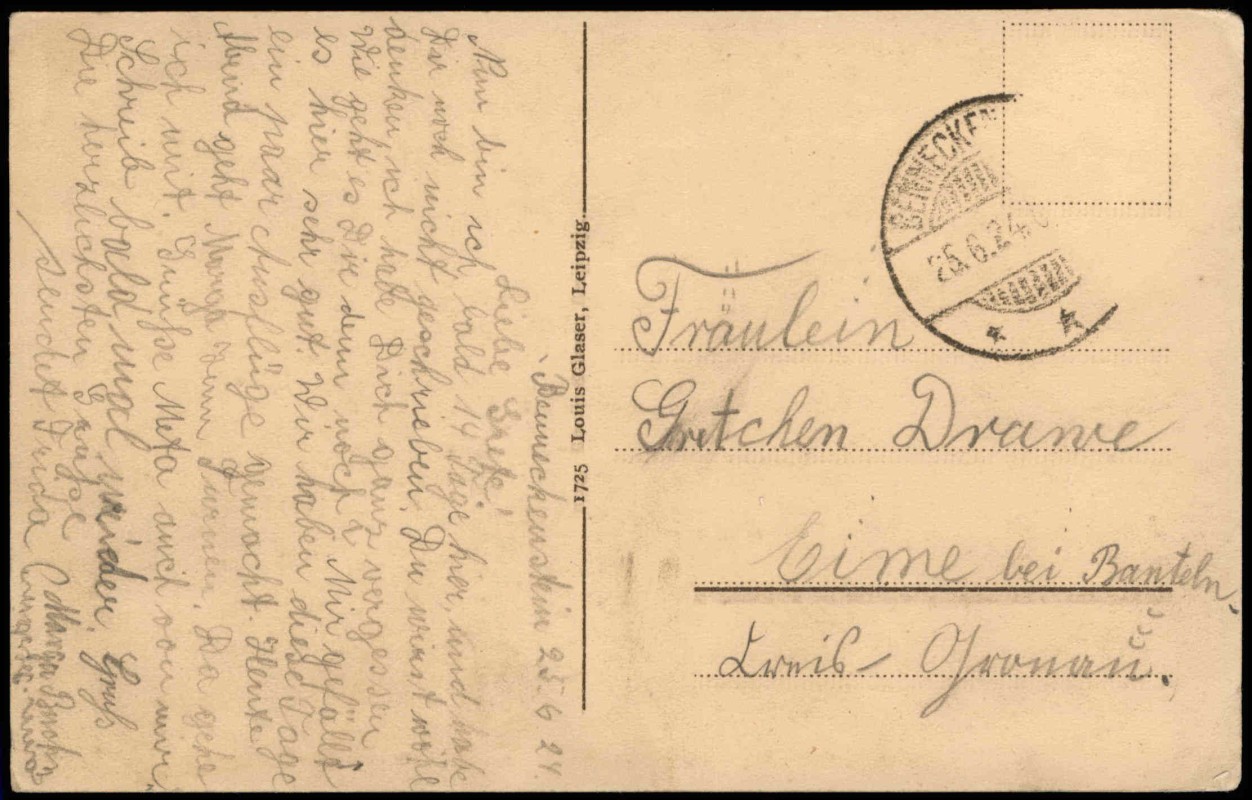 Benneckenstein 25.6 24.
Liebe Grete!
Nun bin ich bald 14 Tage hier, und habe
Dir noch nicht geschrieben. Du wirst wohl
denken ich hätte Dich ganz vergessen
Wie geht es Dir denn noch? Mir gefällt
es hier sehr gut Wir haben diese Tage
ein paar Ausflüge gemacht. Heute
Abend geht Marga zum Turnen. Da gehe
ich mit. Grüße Meta auch von mir,
Schreib bald mal wieder.
Die herzlichsten Grüße
sendet Frida
Gruß
Marga
1725 Louis Glaser, Leipzig.
BENNECKEN
25.6.24
Fräulein
Gretchen Drawe
Eime bei Banteln.
Kreis Gronau.